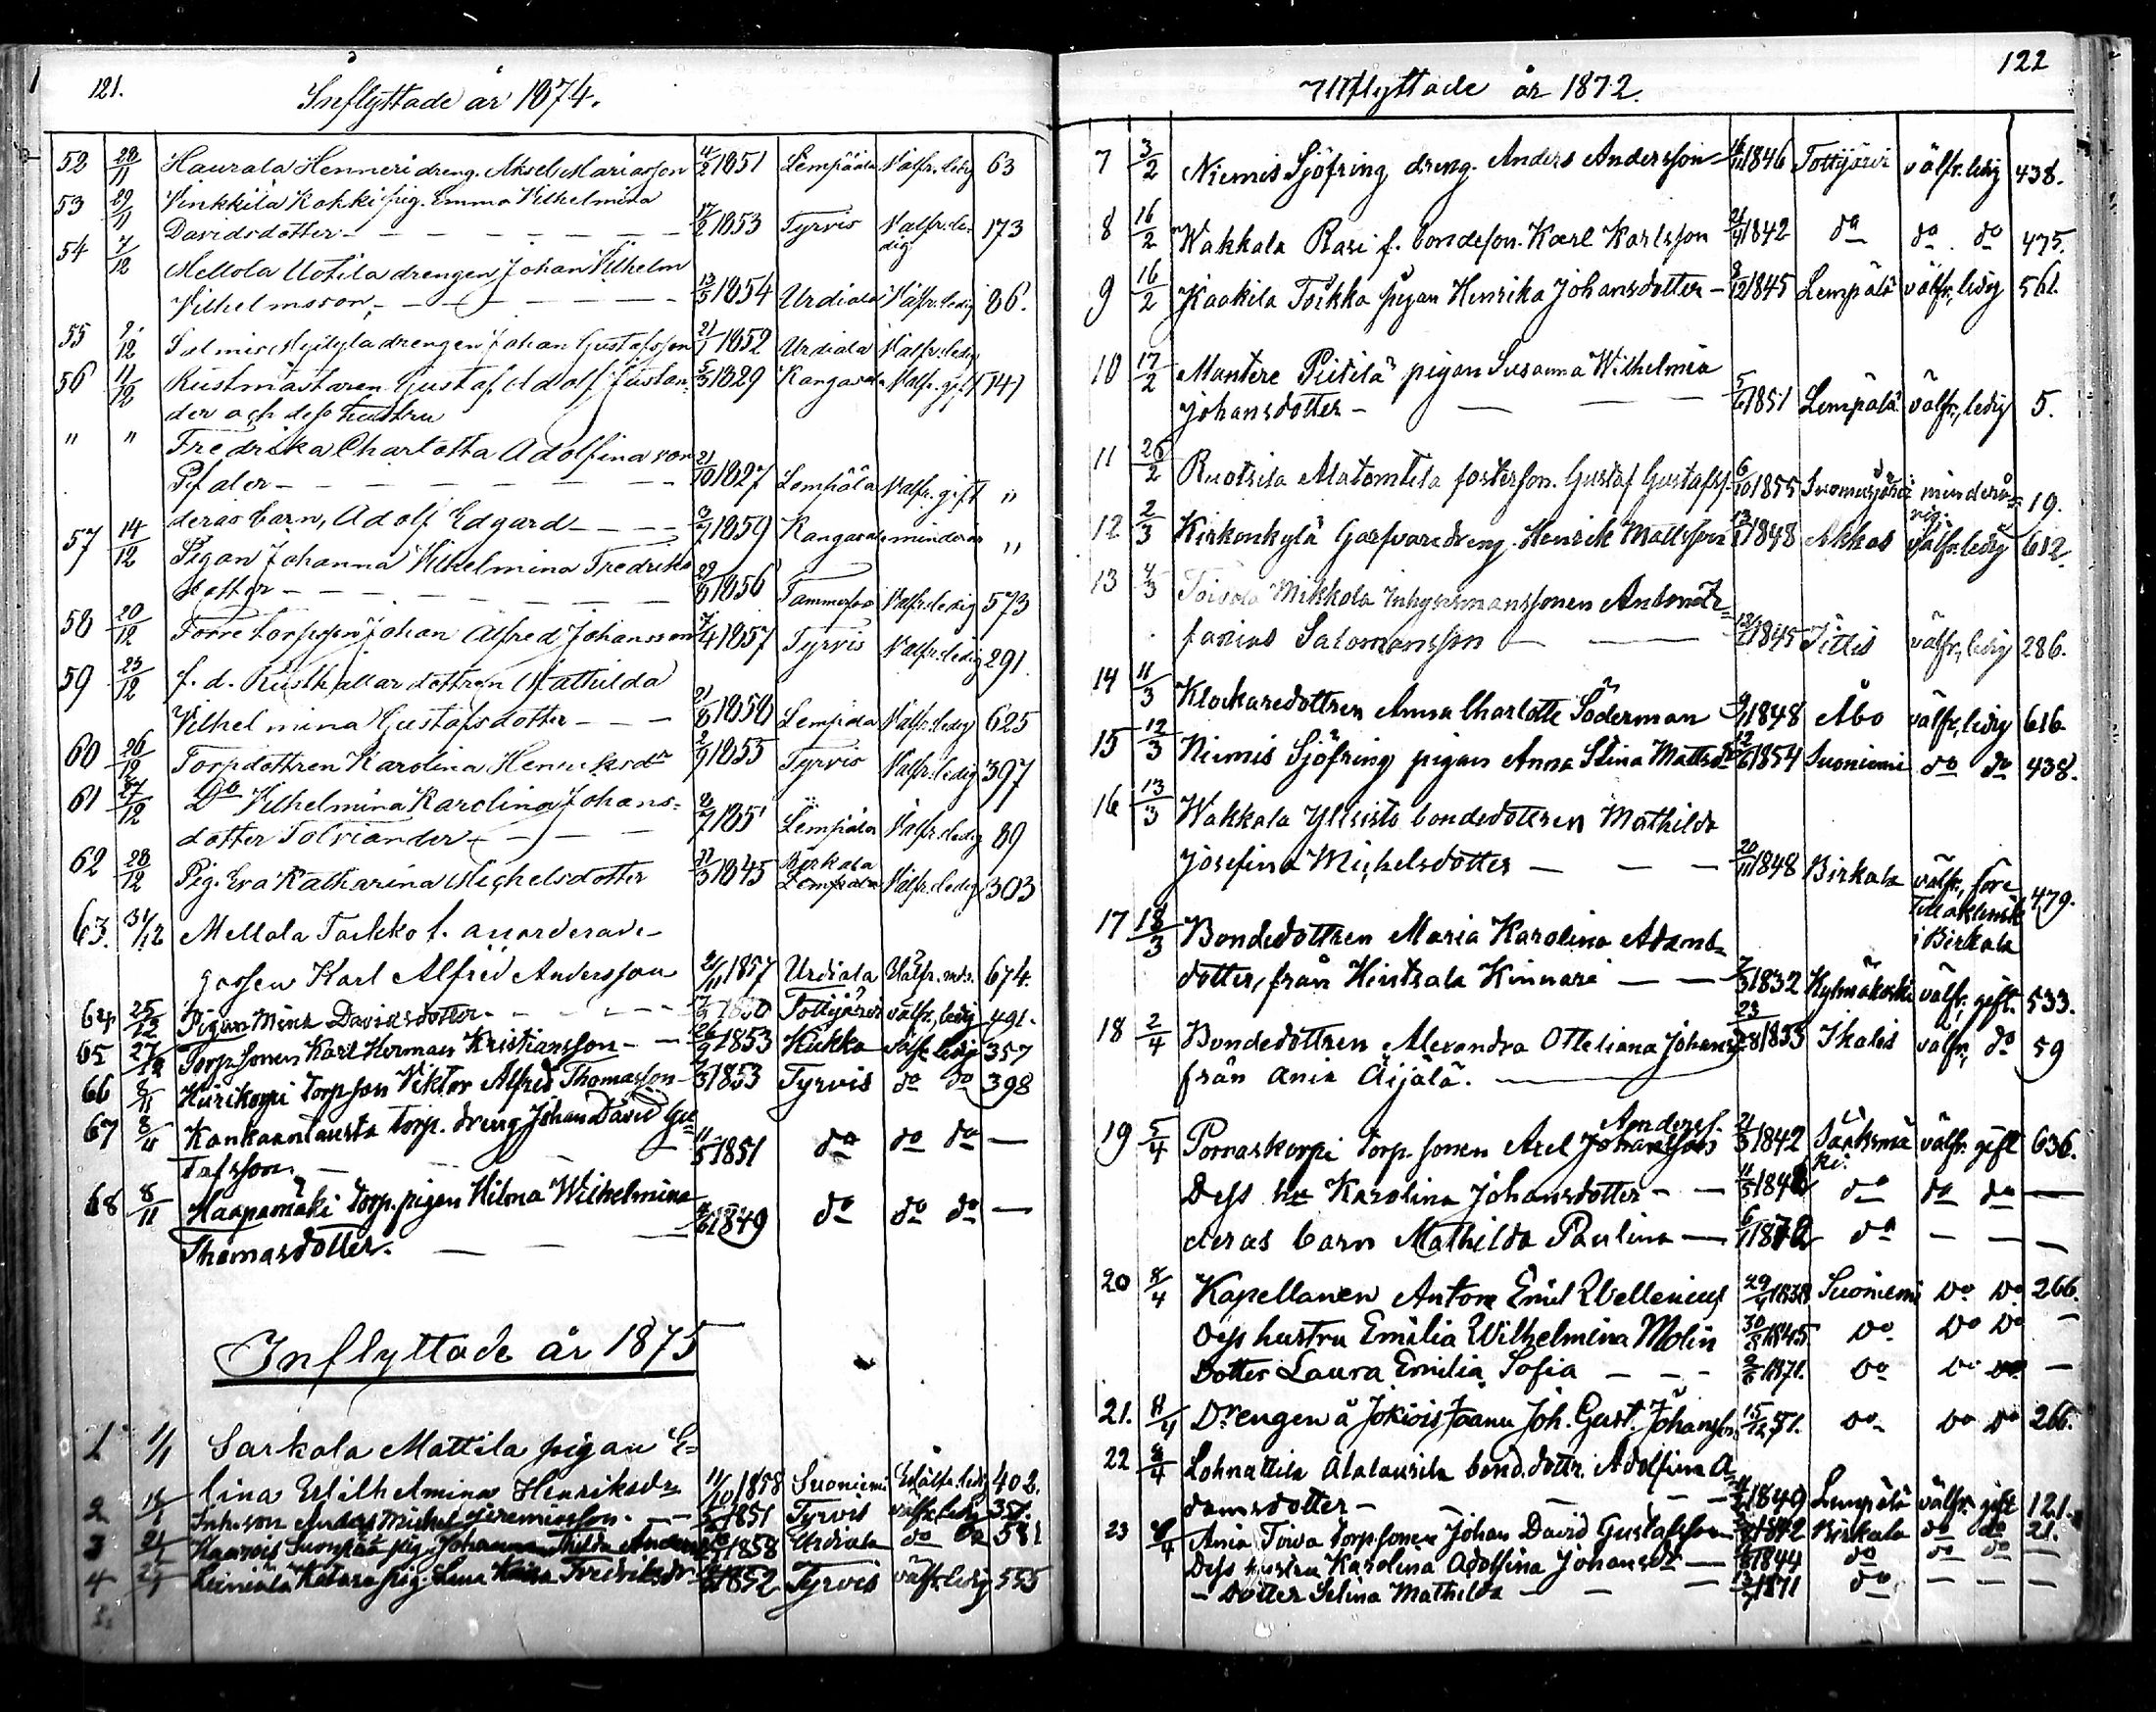 121.
Inflyttade år 1874.
52 28/11 Haurala Henneri dreng. Aksel Mariasson 4/2 1851 Lempäälä Välfr. ledig 63
53 29/11 Vinkkilä Kahki pig. Emma Vilhelmina
Davidsdotter - - - - - 17/2 1853 Tyrvis Välfr. le-
dig 173
54 7/12 Mellola Uotila drengen Johan Vilhelm
Vilhelmsson, - - - - - 13/5 1854 Urdiala Välfr. ledig 86.
55 9/12 drengen Johan Gustafsson 21/1 1852 Urdiala Välfr. ledig
56 11/12 Rustmästaren Gustaf Adolf 5/3 1829 Kangasala Välfr. gift 541
der och dess hustru
" " Fredrika Charlotta Adolfina von
Pfaler - - - - - 21/10 1827 Lempäla Välfr. gift "
deras barn, Adolf Edgard - - - 1859 Kangasala minderår "
57 14/12 Pigan Johanna Vilhelmina Fredriks
dotter - - - - - 29/8 1856 Tammerfos Välfr. ledig 573
58 20/12 Torre torpson Johan Alfred Johansson 7/4 1857 Tyrvis Välfr. ledig 291.
59 23/12 f. d. Rusthållardottren Mathilda
Vilhelmina Gustafsdotter - - - 21/8 1858 Lempäla Välfr. ledig 625
60 26/12 Torpdottren Karolina Henriksdr 2/9 1855 Tyrvis Välfr. ledig 397
61 27/12 Do Vilhelmina Karolina Johans=
dotter Tolviander - - - 1851 Lempäla Välfr. ledig 89
62 28/12 Pig. Eva Katharina Michelsdotter 31/3 1845 Birkala
Lempäla Välfr. ledig 303
63. 31/12 Mellola Taikko f. anordrade
gossen Karl Alfred Andersson 21/11 1857 Urdiala Välfr. 674.
64 25/12 Pigan Mina Davidsdotter - - - Tottijärvi välfr., ledig 491.
65 27/12 Torpsonen Karl Herman Kristiansson - - 26/9 1853 Kukka välfr. ledig 357
66 8/11 Hurikorpi torpson Viktor Alfred Thomasson 1853 Tyrvis do do 398
67 8/11 Kankaantausta torp. dreng Johan David Gu=
stafsson. - - - 11/5 1851 do do do —
68 8/11 Haapamäki torp. pigan Hilma Wilhelmina
Thomasdotter. - - - 1849 do do do —
Inflyttade år 1875
1 1/1 Sarkola Mattila pigan E=
lina Wilhelmina Henriksdr 11/10 1858 Suoniemi Wälfr. ledig 402.
2 Inh. son Michel Jeremiasson. - - 1851 Tyrvis välfr. ledig
3 pig. Johanna 1858 Urdiala do do 581
4 pig. Lena Fredriksdr 1852 Tyrvis välfr. ledig 555
122
Utflyttade år 1872.
7 3/2 Niemis Sjöfring dreng. Anders Andersson 1846 Tottijärvi välfr. ledig 438.
8 16/2 Wakkala Rasi f. bondeson. Karl Karlsson 1842 do do do 475.
9 16/2 Kaakila Toikka pigan Henrika Johansdotter - 9/12 1845 Lempälä välfr., ledig 561.
10 17/2 Mantere Piitilä pigan Susanna Wilhelmia
Johansdotter - - - 5/6 1851 Lempälä välfr., ledig 5.
11 26/2 Ruotsila Alatomtila fosterson. Gustaf Gustafss. 6/10 1855 Suomusjärvi minderå=
rig. 19.
12 2/3 Kirkonkylä Garfvaredreng. Henrik Mattsson 1848 Akkas välfr. ledig 612.
13 4/3 Toivola Mikkola inhysesmanssonen Anton
Salomonsson - - 1845 Tittis välfr., ledig 286.
14 11/3 Klockaredottren Anna Charlotte Söderman 1848 Åbo välfr., ledig 616.
15 12/3 Niemis Sjöfring pigan Anna Stina Mattsdr 1854 Suoniemi do do 438.
16 13/3 Wakkala Yllsisto bondedottren Mathilda
Josefina Michelsdotter - - - 20/11 1848 Birkala välfr., före
till äktensk
i Birkala 479.
17 18/3 Bondedottren Maria Karolina Adams
dotter, från Hintsala Kinnari - - 7/3 1832 Kylmäkoski välfr., gift. 533.
18 2/4 Bondedottren Alexandra Otteliana Johansdr 23/8 1853 Ikalis välfr., do 59
från Ania Äijälä. -
19 5/4 Pornaskorpi torp. sonen Axel Anderss.
Johansson 21/3 1842 Sääksmä
ki. välfr. gift 636.
Dess hu Karolina Johansdotter - - 11/3 1842 do do do —
deras barn Mathilda Paulina — 6/1 1872 do — — —
20 8/4 Kapellanen Anton Emil Wellenius 29/4 1838 Suoniemi Do Do 266.
Dess hustru Emilia Wilhelmina Molin 1845. Do Do Do —
Dotter Laura Emilia Sofia - - - 1871. Do Do Do —
21. 8/4 Drengen å Jokiois Jaanu Joh. Gust. Johansson 15/12 51. Do Do Do 266.
22 8/4 Lohnattila Alatausila bond. dottr. Adolfina A=
damsdotter - - - 1849 Lempälä välfr. gift 121.
23 8/4 Ania Toiva torpsonen Johan David Gustafsson 1842 Birkala do do 21.
Dess hustru Karolina Adolfina Johansdr - 1844 do do do —
- Dotter Selina Mathilda - - - 1871 do — — —